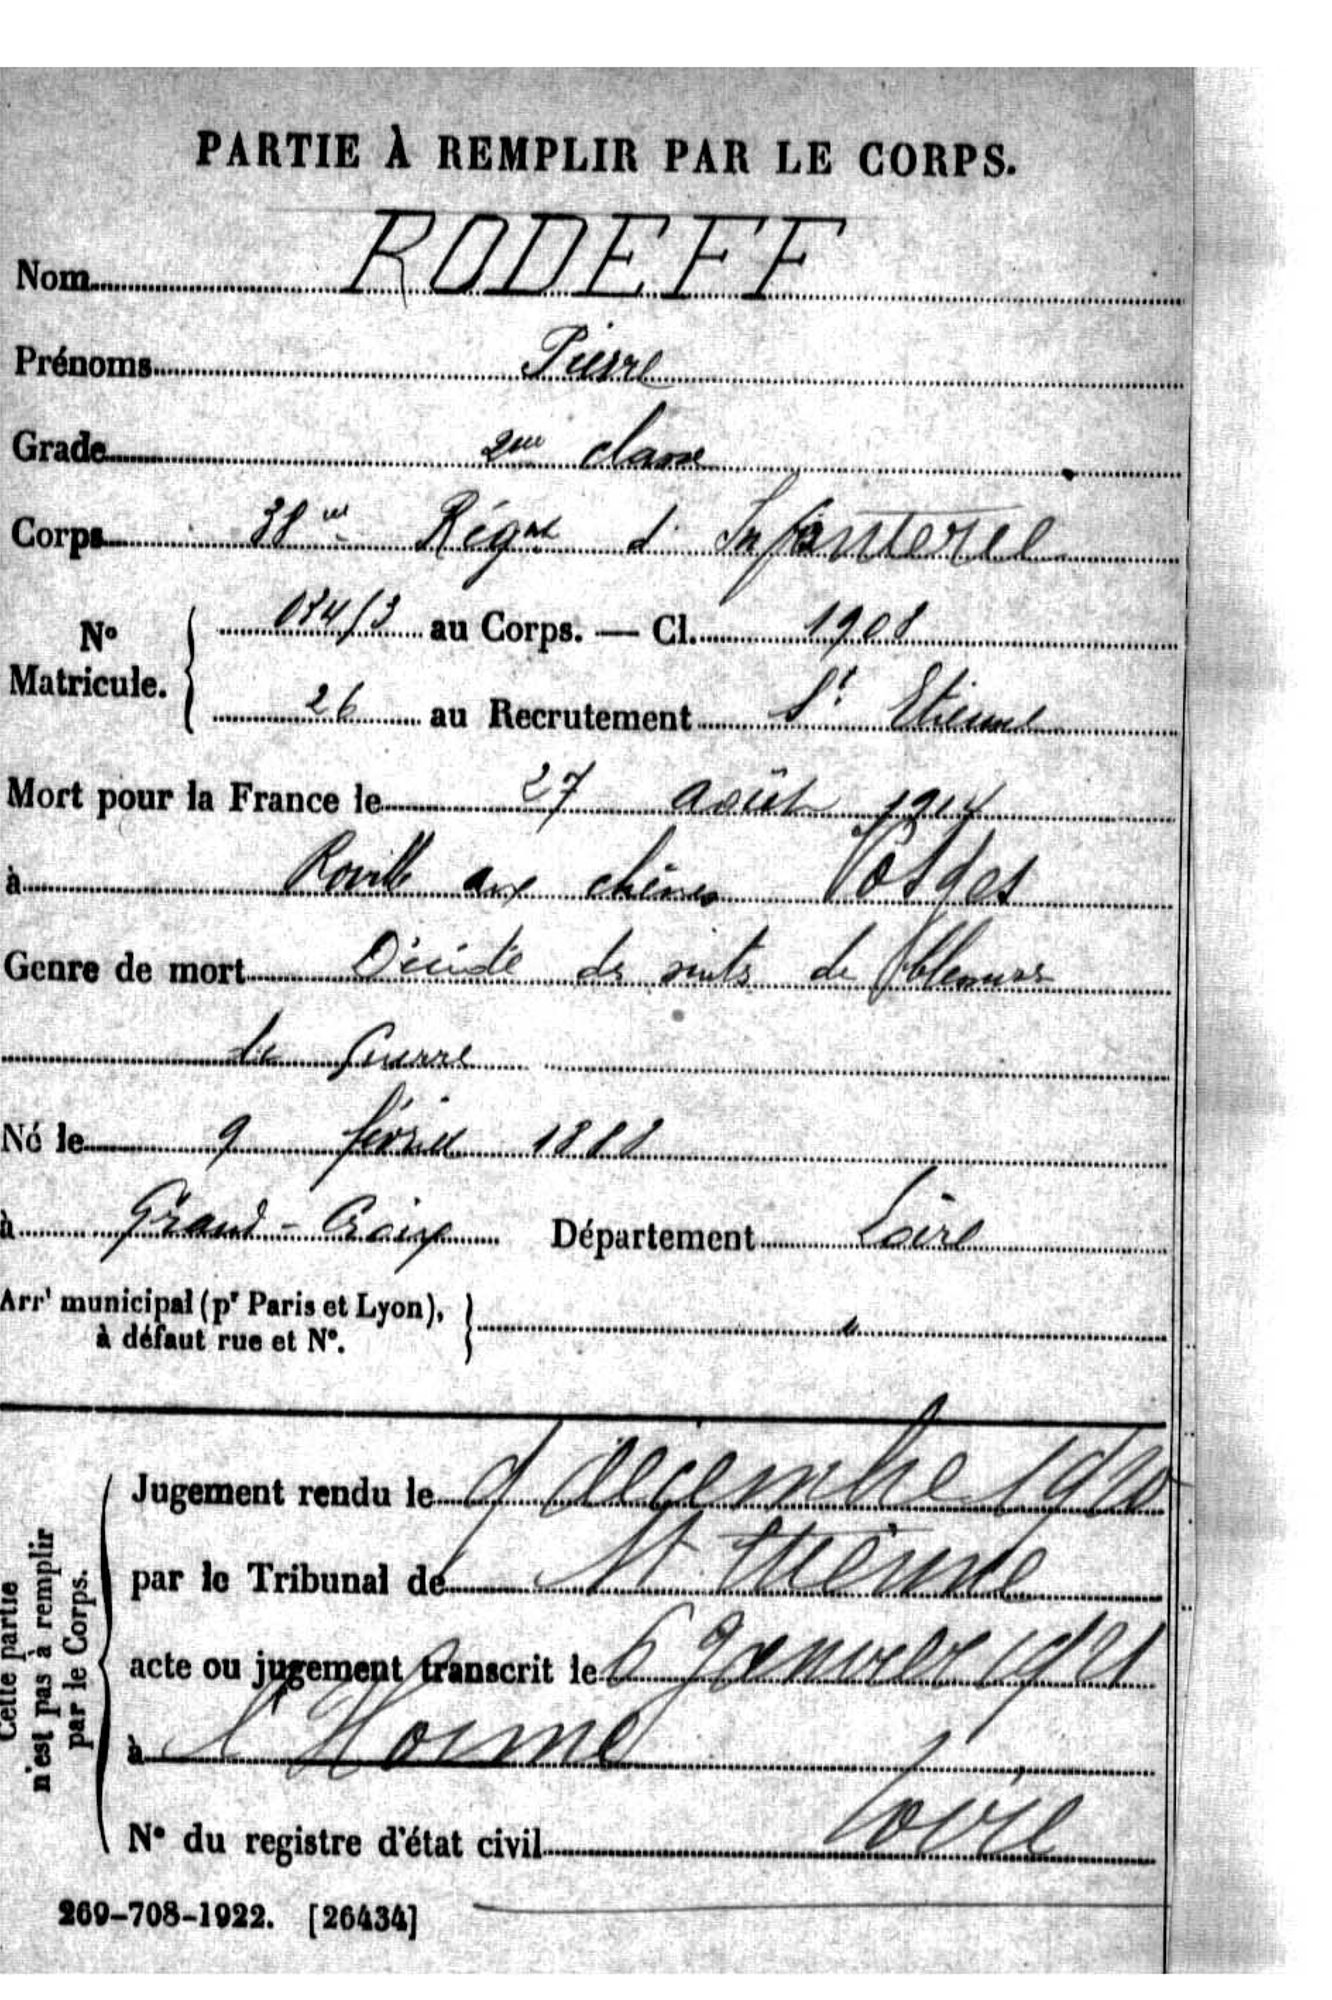 PARTIE À REMPLIR PAR LE CORPS.
Nom RODEFF
Prénoms Pierre
Grade 2me classe
Corps 38me Régnt d'Infanterie
No Matricule. 034/3 au Corps. — Cl. 1908
26 au Recrutement St Etienne
Mort pour la France le 27 août 1914
à Roville aux chênes Vosges
Genre de mort Décédé des suites de blessures
de Guerre
Né le 9 février 1888
à Grand-Croix Département Loire
Arrt municipal (pr Paris et Lyon), "
à défaut rue et No.
Cette partie n'est pas à remplir par le Corps.
Jugement rendu le 9 décembre 1920
par le Tribunal de St Etienne
acte ou jugement transcrit le 6 Janvier 1921
à l'Horme
Loire
No du registre d'état civil
269-708-1922. [26434]